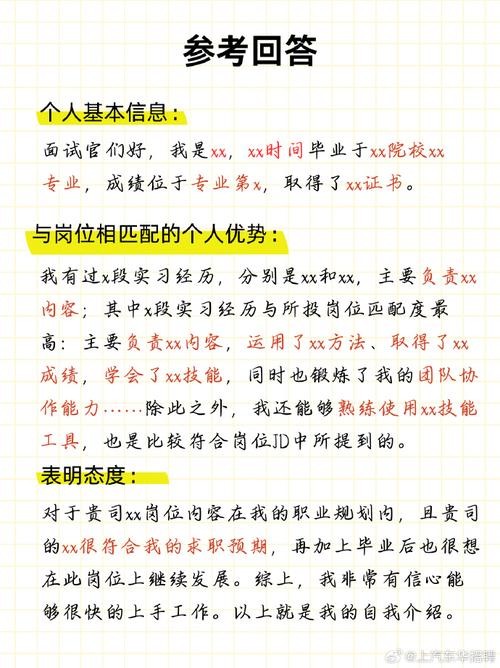 参考回答
个人基本信息：
面试官们好，我是xx，xx时间毕业于xx院校xx
专业，成绩位于专业第x，取得了xx证书。
与岗位相匹配的个人优势：
我有过x段实习经历，分别是xx和xx，主要负责xx
内容；其中x段实习经历与所投岗位匹配度最
高：主要负责xx内容，运用了xx方法、取得了xx
成绩，学会了xx技能，同时也锻炼了我的团队协
作能力……除此之外，我还能够熟练使用xx技能
工具，也是比较符合岗位JD中所提到的。
表明态度：
对于贵司xx岗位内容在我的职业规划内，且贵司
的xx很符合我的求职预期，再加上毕业后也很想
在此岗位上继续发展。综上，我非常有信心能
够很快的上手工作。以上就是我的自我介绍。
@上汽东华招聘